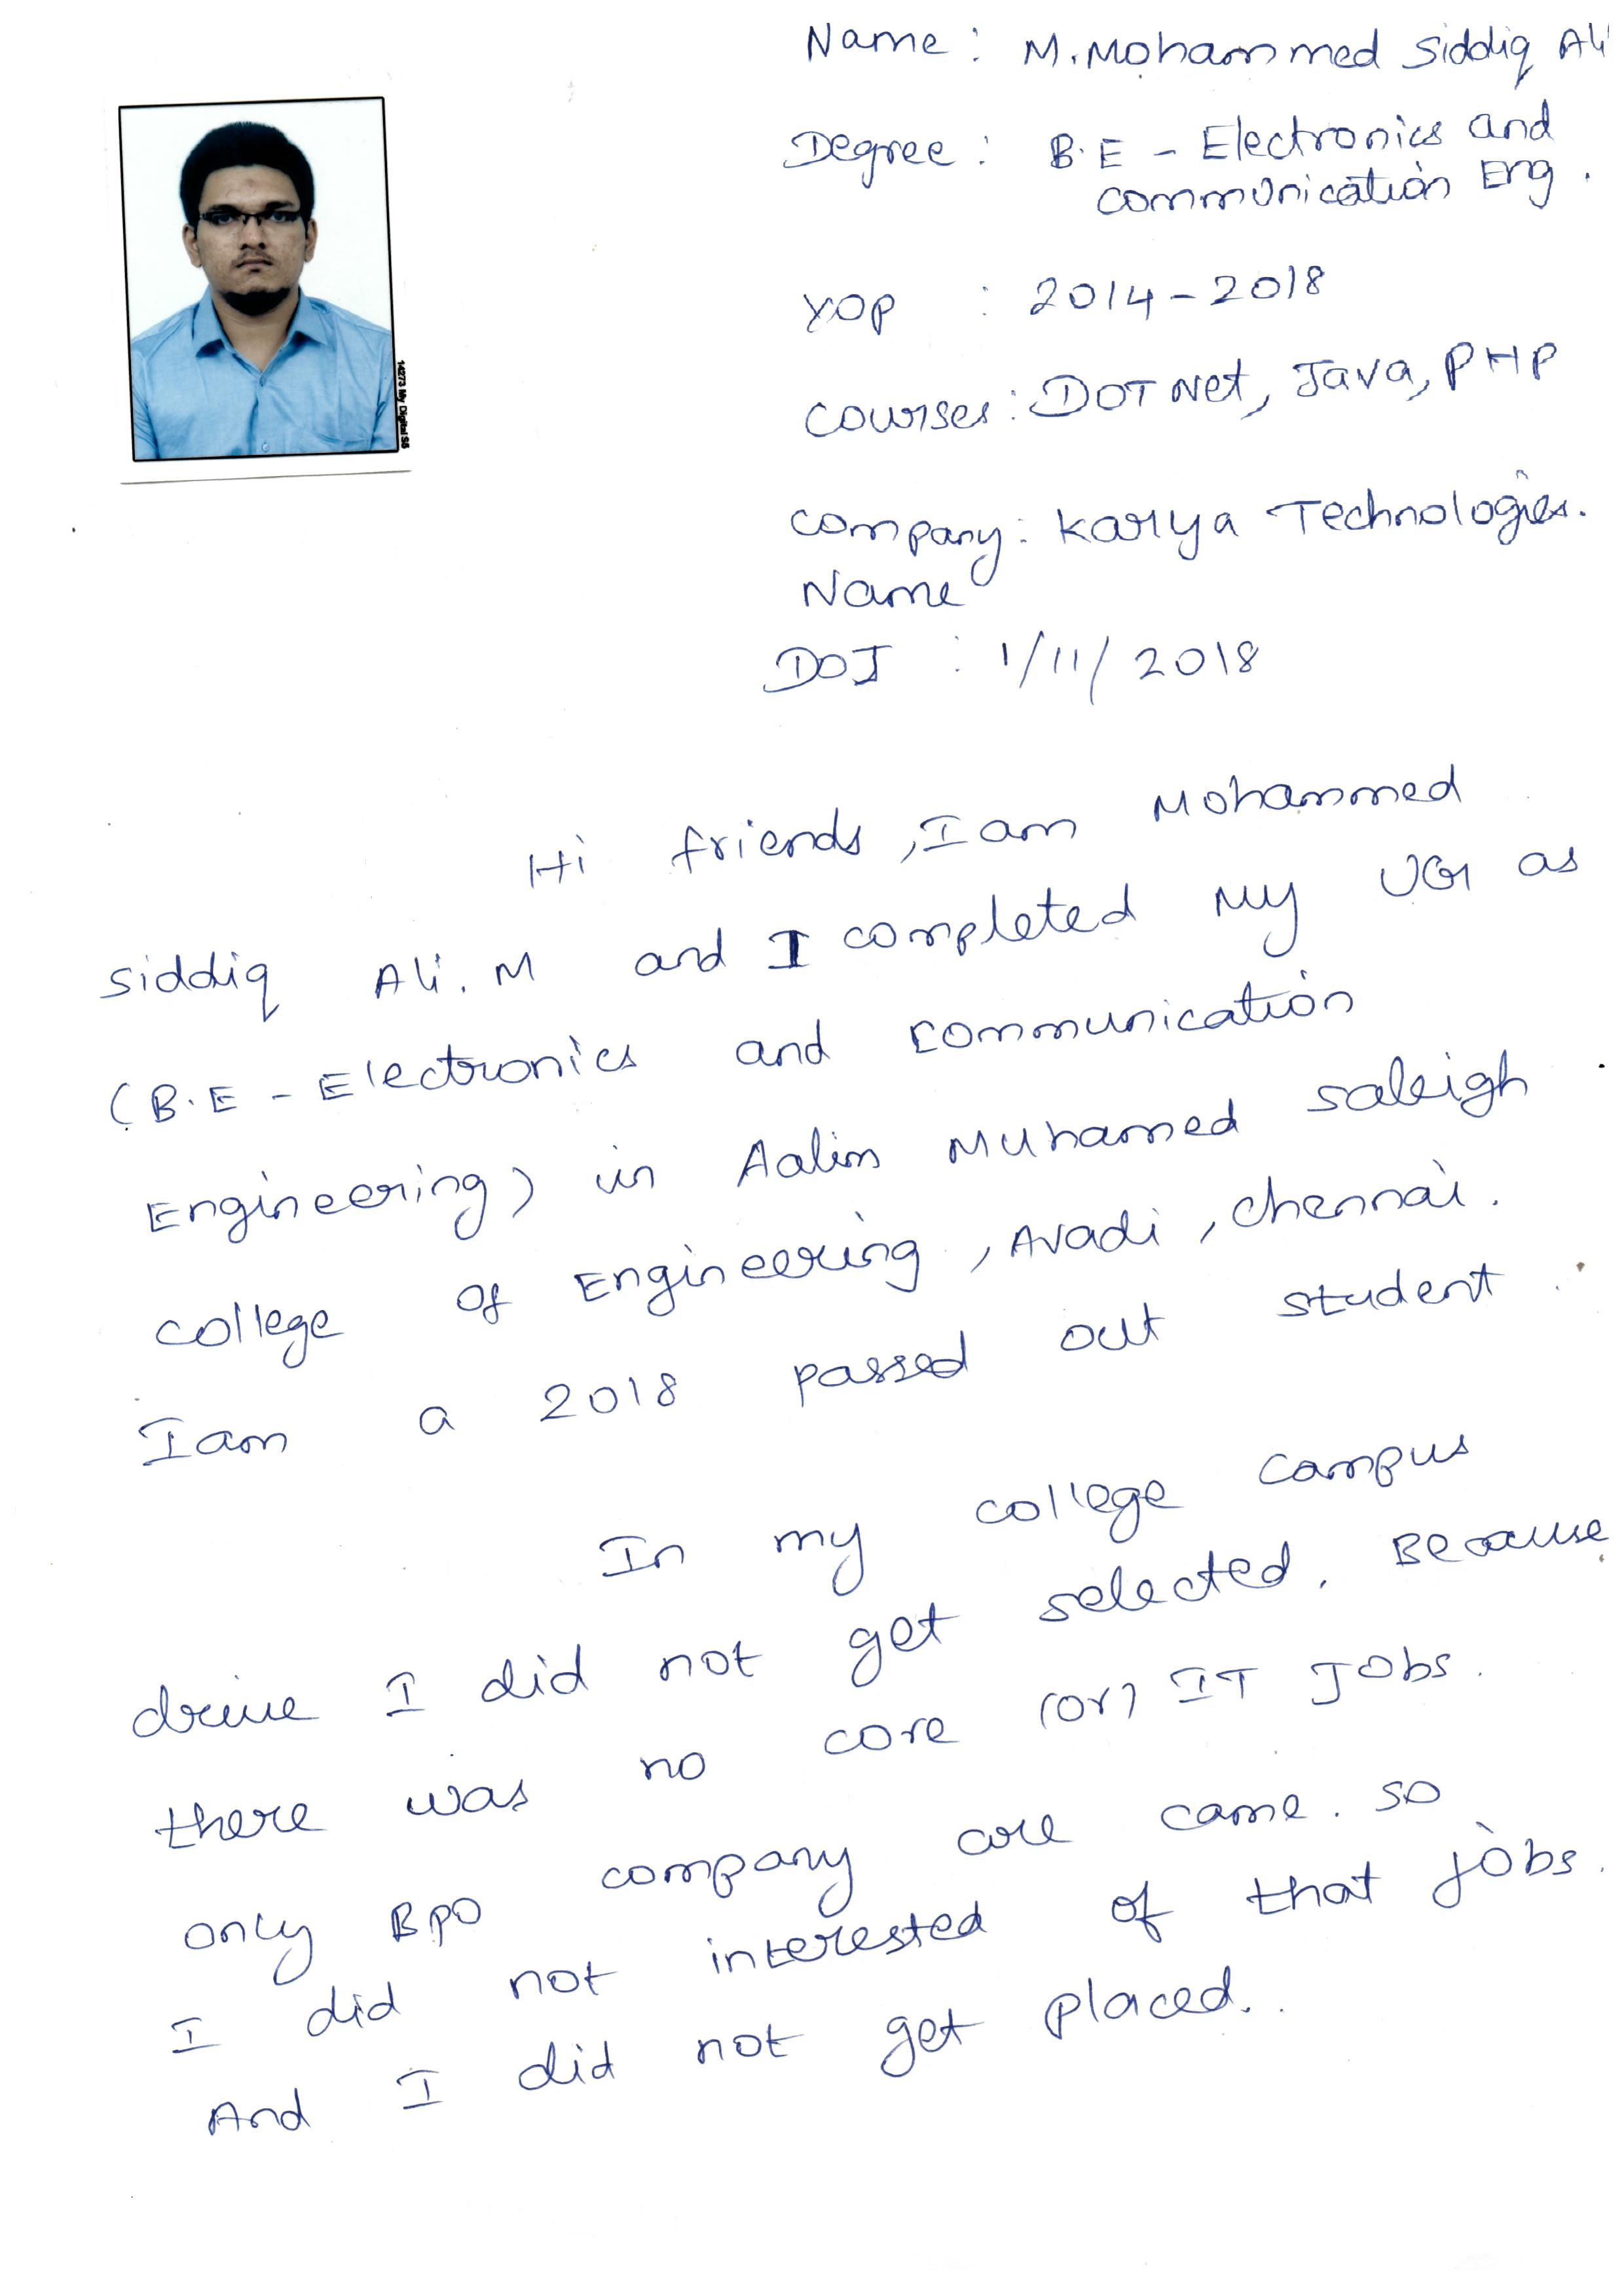 Name : M.Mohammed Siddiq Ali
Degree : B.E - Electronics and
communication Eng.
YOP : 2014-2018
Courses : DOT Net, Java, PHP
Company : Karya Technologies.
Name
DOJ : 1/11/2018
14273 My Digital S6
Hi friends, I am Mohammed
Siddiq Ali. M and I completed My UG as
(B.E - Electronics and Communication
Engineering) in Aalim Muhamed Saleigh
college of Engineering, Avadi, Chennai.
I am a 2018 passed out student.
In my college campus
drive I did not get selected. Because
there was no core (or) IT Jobs.
only BPO company are came. so
I did not interested of that jobs.
And I did not get placed.